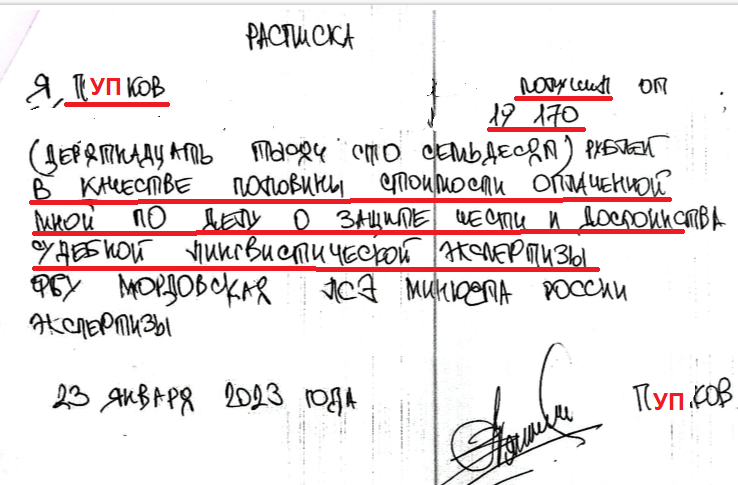 РАСПИСКА
Я, ПУПКОВ получил от
19 170
(ДЕВЯТНАДЦАТЬ ТЫСЯЧ СТО СЕМЬДЕСЯТ) РУБЛЕЙ
В КАЧЕСТВЕ ПОЛОВИНЫ СТОИМОСТИ ОПЛАЧЕННОЙ
МНОЙ ПО ДЕЛУ О ЗАЩИТЕ ЧЕСТИ И ДОСТОИНСТВА
СУДЕБНОЙ ЛИНГВИСТИЧЕСКОЙ ЭКСПЕРТИЗЫ
ФБУ МОРДОВСКАЯ ЛСЭ МИНЮСТА РОССИИ
ЭКСПЕРТИЗЫ
23 ЯНВАРЯ 2023 ГОДА ПУПКОВ